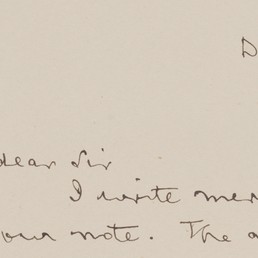 D
dear Sir
I write mer
our note. The a